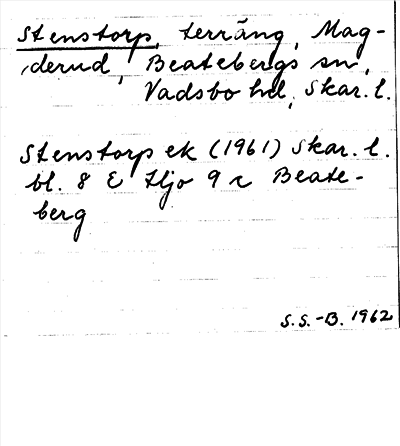 Stenstorp, terräng, Mag-
derud, Beatebergs sn,
Vadsbo hd, Skar. l.
Stenstorp ek (1961) Skar. l.
bl. 8 E Hjo 9 c Beate-
berg
S.S.-B. 1962